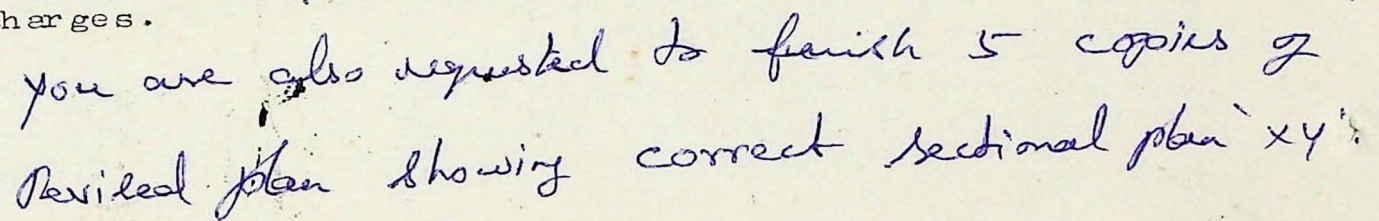 harges.
you are also requested to furnish 5 copies of
Revised plan showing correct sectional plan 'xy'.